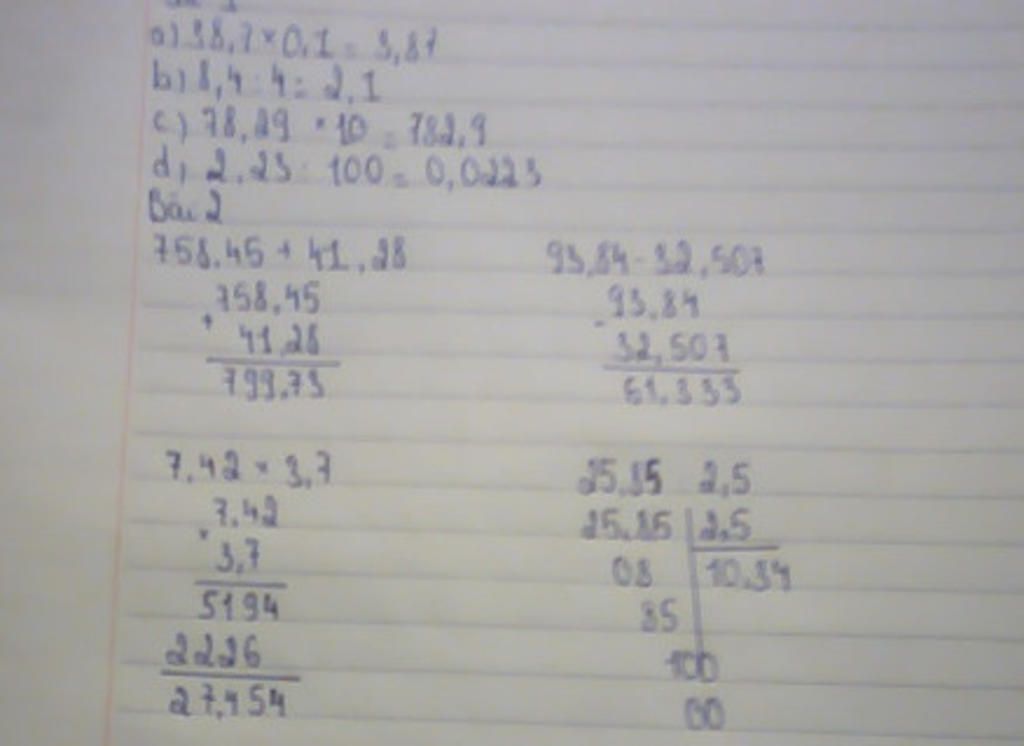 a) 38,7 × 0,1 = 3,87
b) 8,4 : 4 = 2,1
c) 78,29 × 10 = 782,9
d) 2,23 : 100 = 0,0223
Bài 2
758,45 + 41,28
758,45
+
41,28
799,73
93,84 - 32,507
93,84
-
32,507
61,333
7,42 × 3,7
7,42
×
3,7
5194
2226
27,454
25,85 2,5
25,85 2,5
08 10,34
85
100
00